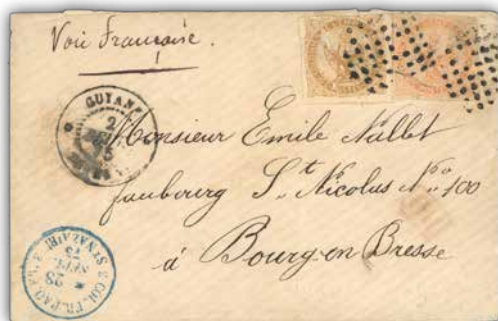 Voie Française.
GUYANE
2
Monsieur Emile Nallet
faubourg St. Nicolas No. 100
à Bourg-en-Bresse
COL. FR. PAQ. FR.
ST NAZAIRE
28
SEPT.
75